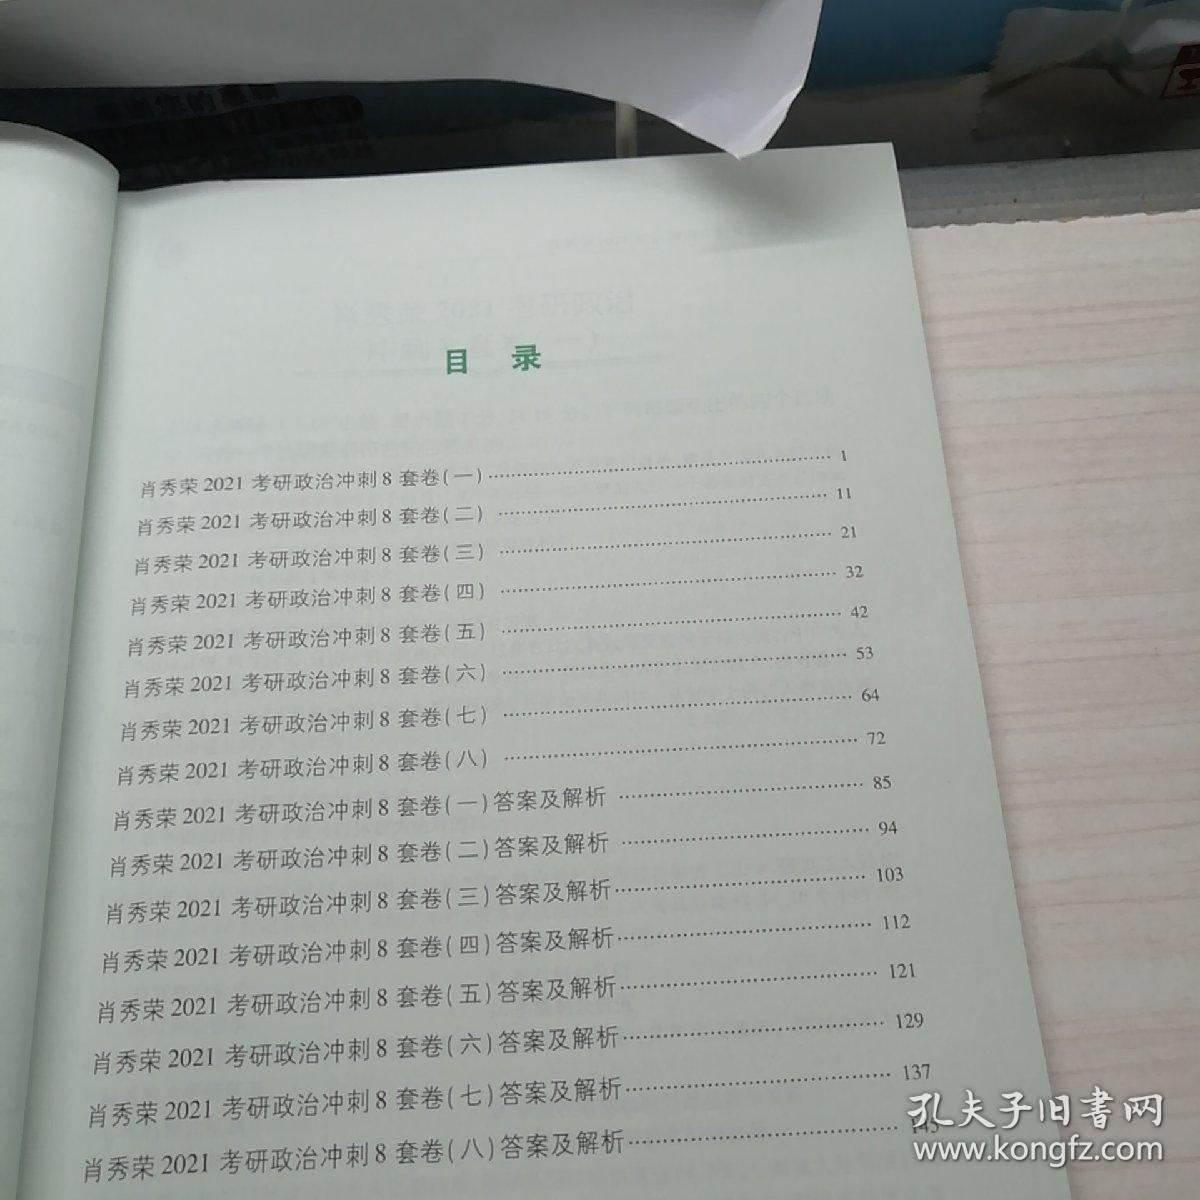 目 录
肖秀荣2021考研政治冲刺8套卷(一)…………1
肖秀荣2021考研政治冲刺8套卷(二)…………11
肖秀荣2021考研政治冲刺8套卷(三)…………21
肖秀荣2021考研政治冲刺8套卷(四)…………32
肖秀荣2021考研政治冲刺8套卷(五)…………42
肖秀荣2021考研政治冲刺8套卷(六)…………53
肖秀荣2021考研政治冲刺8套卷(七)…………64
肖秀荣2021考研政治冲刺8套卷(八)…………72
肖秀荣2021考研政治冲刺8套卷(一)答案及解析…………85
肖秀荣2021考研政治冲刺8套卷(二)答案及解析…………94
肖秀荣2021考研政治冲刺8套卷(三)答案及解析…………103
肖秀荣2021考研政治冲刺8套卷(四)答案及解析…………112
肖秀荣2021考研政治冲刺8套卷(五)答案及解析…………121
肖秀荣2021考研政治冲刺8套卷(六)答案及解析…………129
肖秀荣2021考研政治冲刺8套卷(七)答案及解析…………137
肖秀荣2021考研政治冲刺8套卷(八)答案及解析…………145
孔夫子旧书网
www.kongfz.com